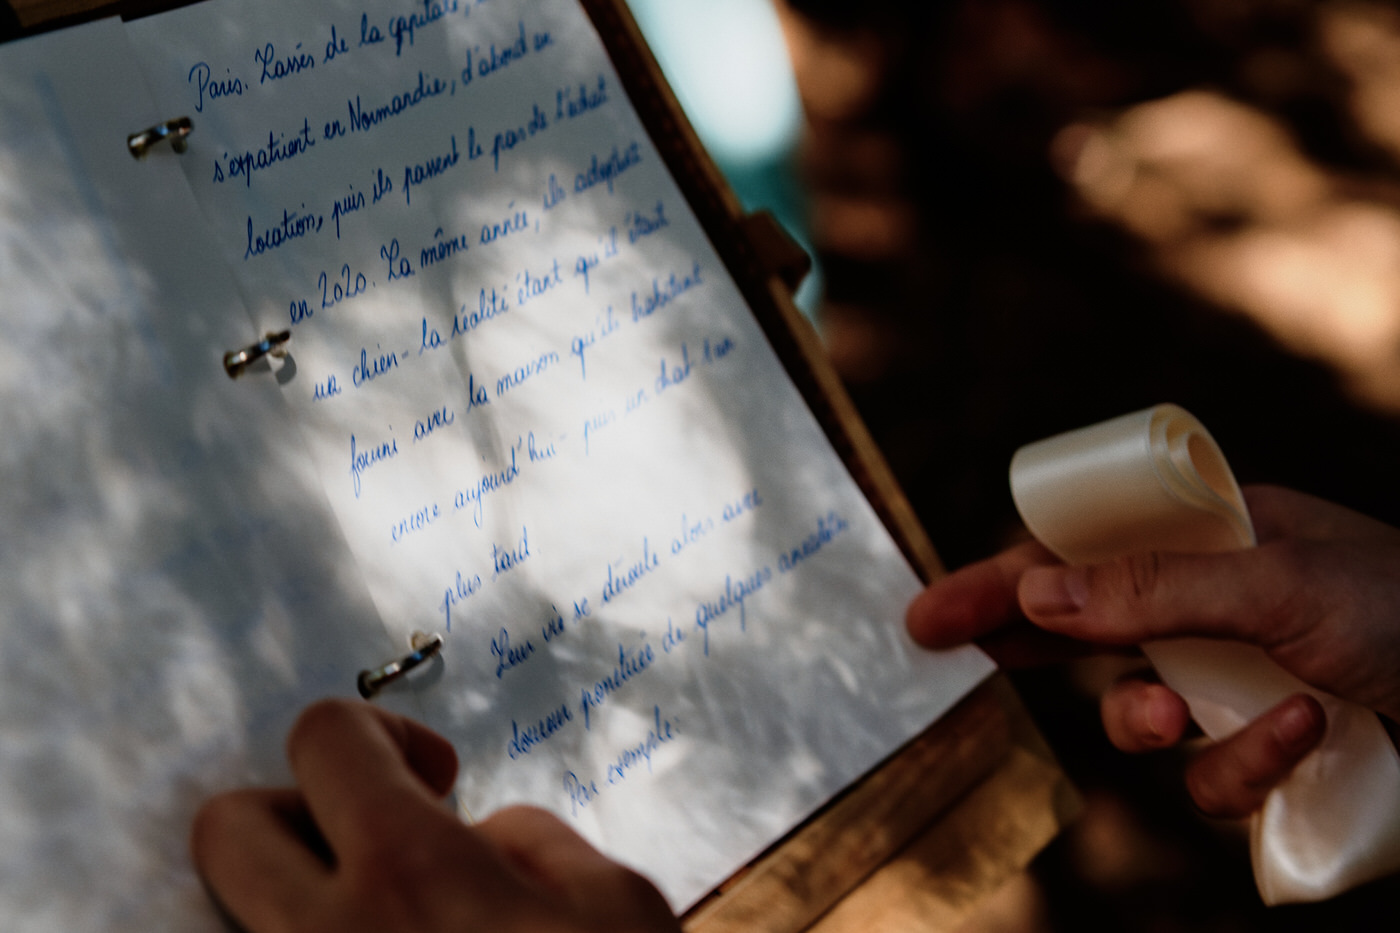 Paris. Lassés de la capitale,
s'expatrient en Normandie, d'abord en
location, puis ils passent le pas de l'achat
en 2020. La même année, ils adoptent
un chien - la réalité étant qu'il était
fourni avec la maison qu'ils habitent
encore aujourd'hui - puis un chat l'an
plus tard.
Leur vie se déroule alors avec
douceur ponctuée de quelques anecdotes.
Par exemple: